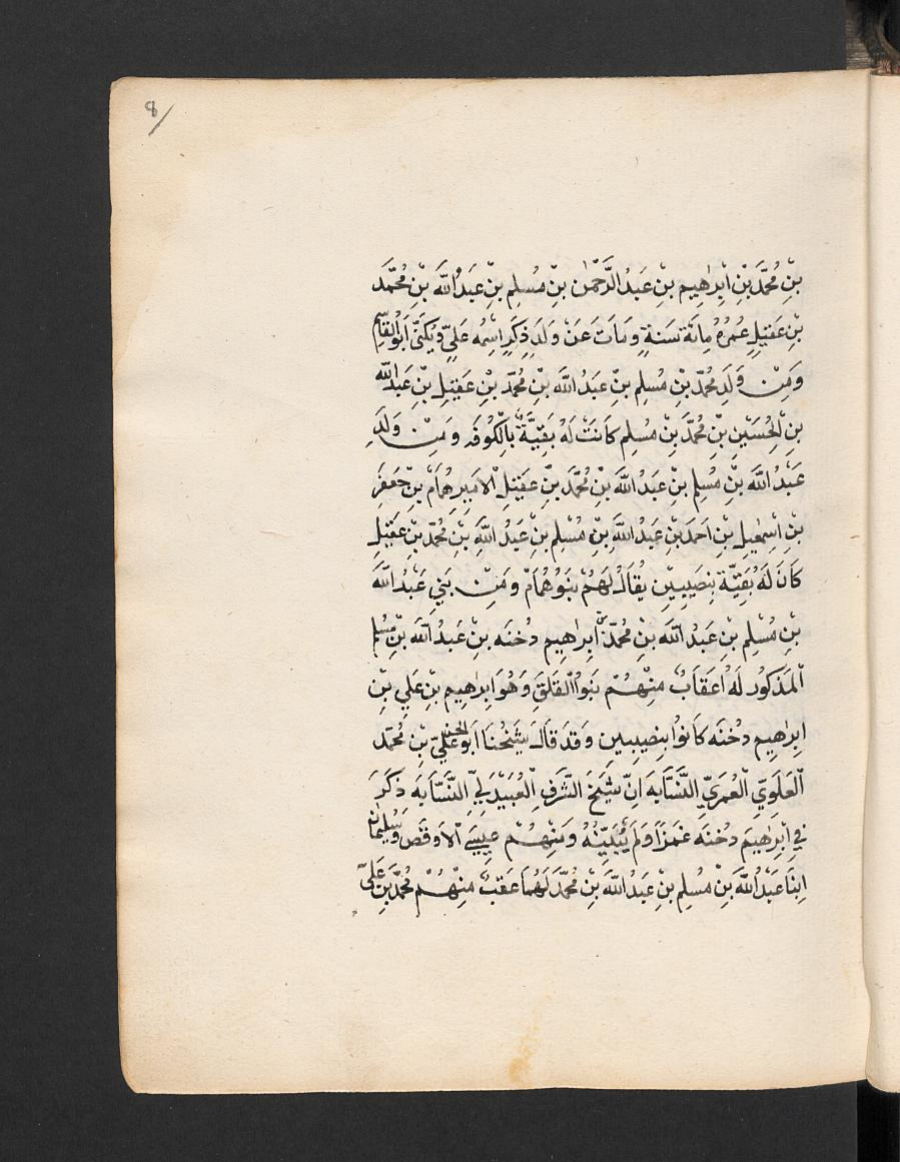 8
بْنِ مُحَمَّدَ بْنِ اِبْرٰهِيم بْنِ عَبْدُ الرَّحْمٰن بْنِ مُسْلِم بْنِ عَبْدُ اللّٰه بْنِ مُحَمَّد
بْنِ عَقِيْلٍ عُمُرُهُ مِائَة سَنَةٍ وَمَاتَ عَنْ وَلَدٍ ذَكَرٍ اِسْمُه عَلِيٍّ وَيُكَنّٰى اَبُو الْقَاسِم
وَمِنْ وَلَدِ مُحَمَّد بْنِ مُسْلِم بْنِ عَبْدُ اللّٰه بْنِ مُحَمَّد بْنِ عَقِيْلِ بْنِ عَبْدُ اللّٰه
بْنِ الْحُسَيْنِ بْنِ مُحَمَّد بْنِ مُسْلِم كَانَتْ لَهُ بَقِيَّةٌ بِالْكُوفَه وَمِنْ وَلَدِ
عَبْدُ اللّٰه بْنِ مُسْلِم بْنِ عَبْدُ اللّٰه بْنِ مُحَمَّد بْنِ عَقِيْلِ الْاَمِيرِ هُمَامْ بْنِ جَعْفَرَ
بْنِ اِسْمٰعِيل بْنِ اَحْمَد بْنِ عَبْدُ اللّٰه بْنِ مُسْلِم بْنِ عَبْدُ اللّٰه بْنِ مُحَمَّد بْنِ عَقِيْلِ
كَانَ لَهُ بَقِيَّة بِنَصِيبِيْنِ يُقَالُ لَهُمْ بَنُو هُمَامْ وَمِنْ بَنِي عَبْدُ اللّٰه
بْنِ مُسْلِم بْنِ عَبْدُ اللّٰه بْنِ مُحَمَّد بْن اِبْرٰهِيم دُخْنَه بْنِ عَبْدُ اللّٰه بْنِ مُسْلِم
الْمَذْكُور لَهُ اَعْقَابٌ مِنْهُمْ بَنُوا الْفَلَقِ وَهُوَ اِبْرٰهِيم بْنِ عَلِي بْنِ
اِبْرٰهِيم دُخْنَه كَانُوا بِنَصِيبِين وَقَدْ قَالَ شَيْخُنَا اَبُو الْحَسَنِ عَلِيّ بْنِ مُحَمَّد
الْعَلَوِيّ الْعُمَرِيّ النَّسَّابَه اَنَّ شَيْخَ الشَّرَفِ الْعُبَيْدَلِيّ النَّسَّابَه ذَكَرَ
فِي اِبْرٰهِيمَ دُخْنَه غَمْزًا وَلَمْ يُثْبِتْهُ وَمِنْهُمْ عِيسٰى الْاَوْقَص وَسُلَيْمَان
اِبْنَا عَبْدُ اللّٰه بْنِ مُسْلِم بْنِ عَبْدُ اللّٰه بْنِ مُحَمَّد لَهُمَا عَقِبٌ مِنْهُمْ مُحَمَّد بْنِ عَلِيّ